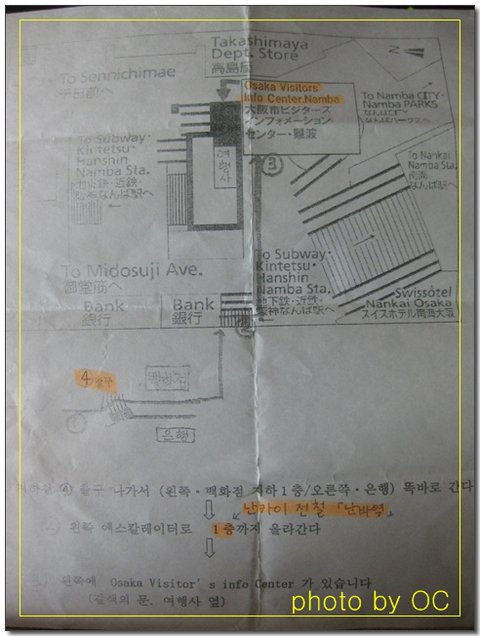 Takashimaya
Dept. Store
高島屋
To Sennichimae
千日前へ
Osaka Visitors'
Info Center. Namba
大阪市ビジターズ
インフォメーション
センター・難波
To Namba CITY・
Namba PARKS
なんばCITY
なんばパークスへ
여행사
③
To Subway・
Kintetsu・
Hanshin
Namba Sta.
地下鉄・近鉄・
なんば駅へ
To Nankai
Namba Sta.
南海
なんば駅へ
To Midosuji Ave.
御堂筋へ
To Subway・
Kintetsu・
Hanshin
Namba Sta.
地下鉄・近鉄・
阪神なんば駅へ
Swissôtel
Nankai Osaka
スイスホテル南海大阪
Bank
銀行
Bank
銀行
②
4 출구
백화점
①
은행
④ 출구 나가서 (왼쪽・백화점 지하1층/오른쪽・은행) 똑바로 간다
난카이 전철 「난바역」
왼쪽 에스칼레이터로 1층까지 올라간다
왼쪽에 Osaka Visitor's info Center 가 있습니다
(갈색의 문. 여행사 옆)
photo by OC